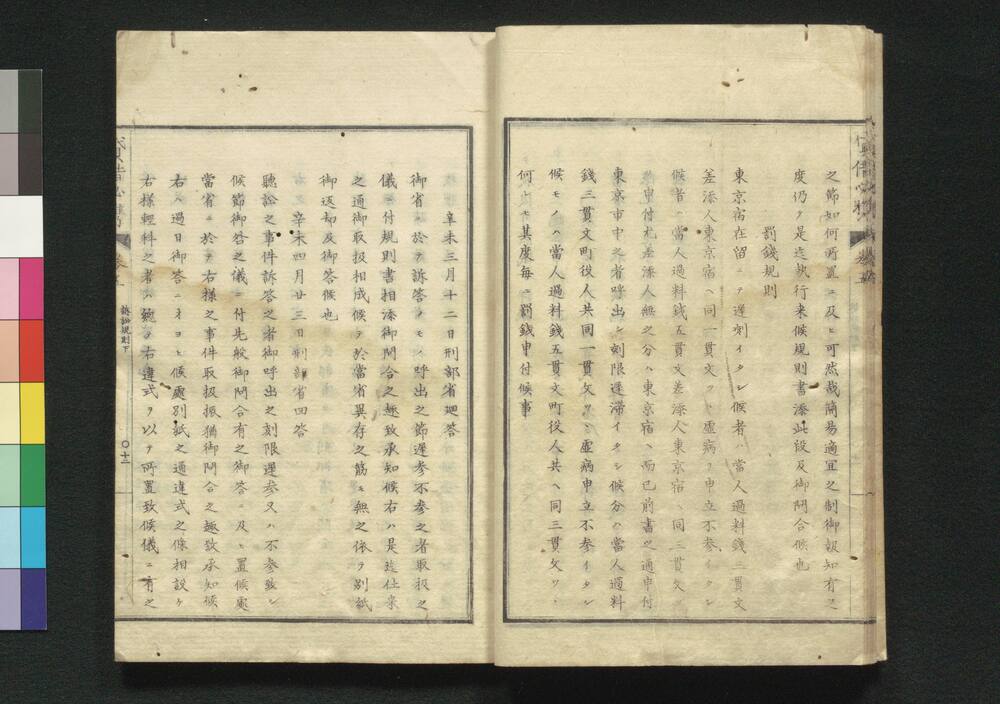 之節如何所置ニ及ヒ可然哉簡易適宜之制御報知有之
度仍テ是迄執行来候規則書添此段及御問合候也
罰銭規則
東京宿在留ニテ遅刻イタシ候者ハ當人過料銭三貫文
差添人東京宿ヘ同一貫文ツヽ虚病ヲ申立不参イタシ
候者ハ當人過料銭五貫文差添人東京宿ヘ同三貫文
ツヽ申付尤差添人無之分ハ東京宿ヘ而已前書之通申付
東京市中之者呼出シ刻限遅滞イタシ候分ハ當人過料
銭三貫文町役人共同一貫文ツヽ虚病申立不参イタシ
候モノハ當人過料銭五貫文町役人共ヘ同三貫文ツヽ
何レモ其度毎ニ罰銭申付候事
辛未三月十二日刑部省廻答
御省ニ於テ訴答ノモノ呼出之節遅参不参之者取扱之
儀ニ付規則書相添御問合之趣致承知候右ハ是迄仕来
之通御取扱相成候テ於當省異存之筋モ無之依テ別紙
御返却及御答候也
辛未四月廿三日刑部省回答
聴訟之事件訴答之者御呼出之刻限遅参又ハ不参致シ
候節御咎之議ニ付先般御問合有之御答ニ及ヒ置候處
當省ニ於テ右様之事件取扱振猶御問合之趣致承知候
右ハ過日御答ニオヨヒ候處別紙之通違式之條相設ケ
右様軽科之者ハ総テ右違式ヲ以テ所置致候儀ニ有之
訴訟規則下
〇十二